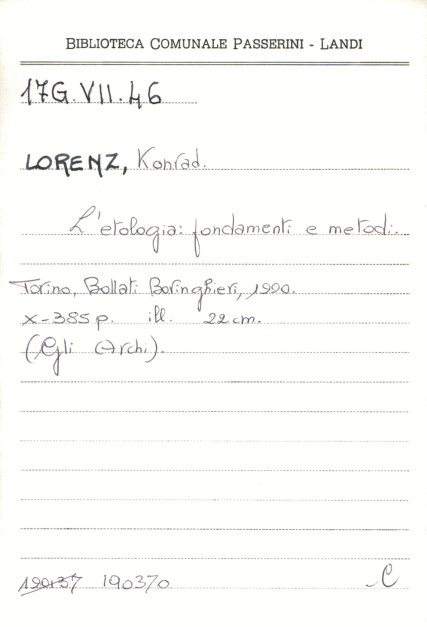 BIBLIOTECA COMUNALE PASSERINI - LANDI
17G.VII.46
LORENZ, Konrad.
L'etologia: fondamenti e metodi.
Torino, Bollati Boringhieri, 1990.
X-385 p. ill. 22 cm.
(Gli Archi).
190370
C